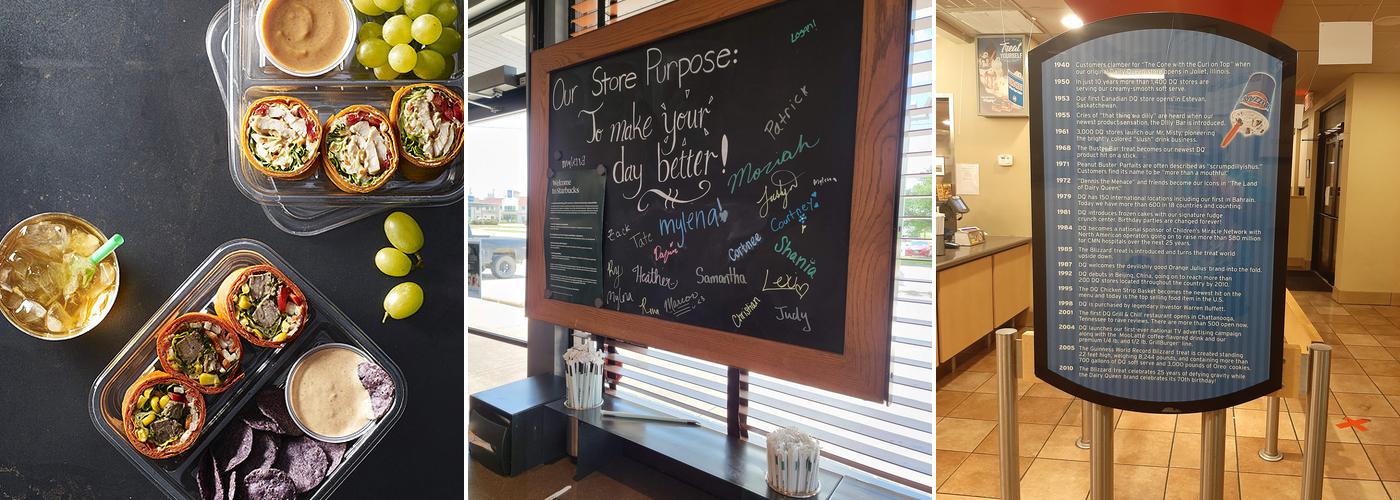 Our Store Purpose:
To make your
day better!
Logan!
Patrick
Moriah
mylena
Welcome
to Starbucks
Zack
Tate
mylena!
Courtney
Shania
Heather
Samantha
Lexi
Myana
Rina
Marcos
Christian
Judy
Treat
YOURSELF
1940 Customers clamber for "The Cone with the Curl on Top" when
our original Dairy Queen store opens in Joliet, Illinois.
1950 In just 10 years more than 1,400 DQ stores are
serving our creamy-smooth soft serve.
1953 Our first Canadian DQ store opens in Estevan,
Saskatchewan.
1955 Cries of "that thing is a dilly" are heard when our
newest product sensation, the Dilly Bar is introduced.
1961 3,000 DQ stores launch our Mr. Misty, pioneering
the brightly colored "slush" drink business.
1968 The Buster Bar treat becomes our newest DQ
product hit on a stick.
1971 Peanut Buster Parfaits are often described as "scrumpdillyishus."
Customers find its name to be "more than a mouthful."
1972 "Dennis the Menace" and friends become our icons in "The Land
of Dairy Queen."
1979 DQ has 150 international locations including our first in Bahrain.
Today we have more than 600 in 18 countries and counting.
1981 DQ introduces frozen cakes with our signature fudge
crunch center. Birthday parties are changed forever!
1984 DQ becomes a national sponsor of Children's Miracle Network with
North American operators going on to raise more than $80 million
for CMN hospitals over the next 25 years.
1985 The Blizzard treat is introduced and turns the treat world
upside down.
1987 DQ welcomes the devilishly good Orange Julius brand into the fold.
1992 DQ debuts in Beijing, China, going on to reach more than
200 DQ stores located throughout the country by 2010.
1995 The DQ Chicken Strip Basket becomes the newest hit on the
menu and today is the top selling food item in the U.S.
1998 DQ is purchased by legendary investor Warren Buffett.
2001 The first DQ Grill & Chill restaurant opens in Chattanooga,
Tennessee to rave reviews. There are more than 500 open now.
2004 DQ launches our first-ever national TV advertising campaign
along with the MooLatté coffee-flavored drink and our
premium 1/4 lb. and 1/2 lb. GrillBurger line.
2005 The Guinness World Record Blizzard treat is created standing
22 feet high, weighing 8,244 pounds, and containing more than
700 gallons of DQ soft serve and 3,000 pounds of Oreo cookies.
2010 The Blizzard treat celebrates 25 years of defying gravity while
the Dairy Queen brand celebrates its 70th birthday!